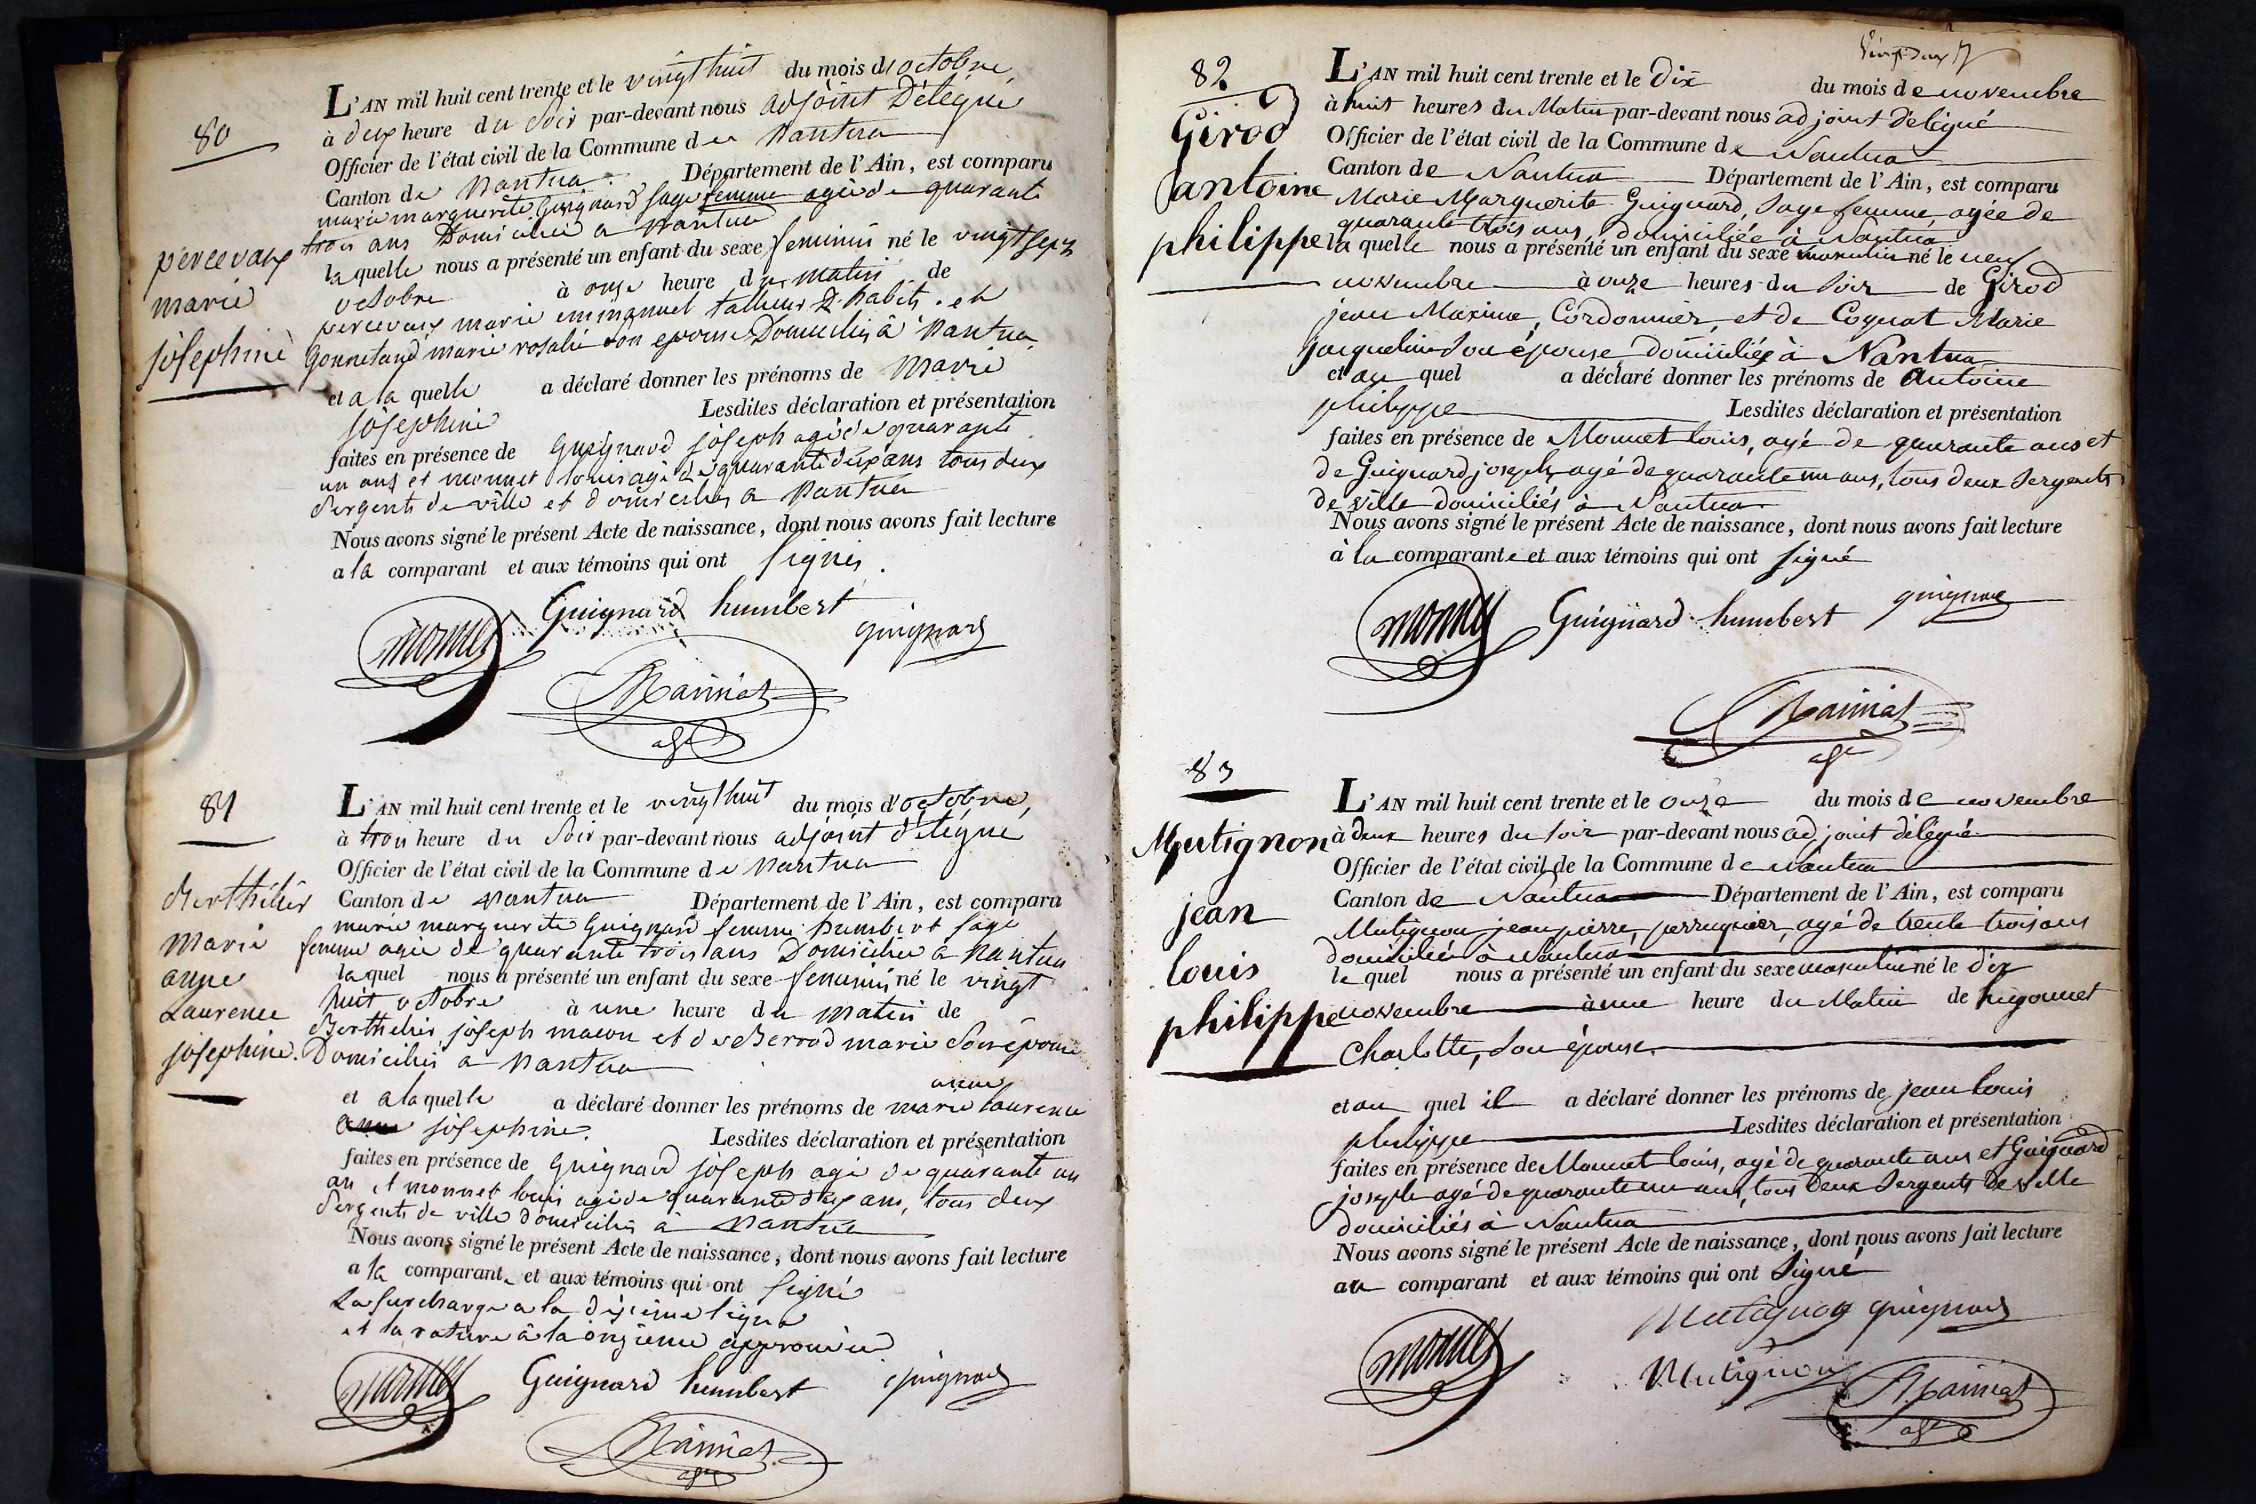 80
percevaux
marie
josephine
L'AN mil huit cent trente et le vingt huit du mois d'octobre,
à deux heure du Soir par-devant nous adjoint Délégué
Officier de l'état civil de la Commune de Nantua
Canton de Nantua. Département de l'Ain, est comparu
marie marguerite Guignard sage femme agée de quarante
trois ans Domiciliée a Nantua
la quelle nous a présenté un enfant du sexe feminin né le vingt sept
octobre à onze heure du matin de
percevaux marie emmanuel tailleur d'habits. et
Gonnetand marie rosalie son epouse Domiciliés à Nantua
et a la quelle a déclaré donner les prénoms de Marie
josephine Lesdites déclaration et présentation
faites en présence de Guignard joseph agé de quarante
un ans et monnet louis agé de quarante deux ans tous deux
Sergents de ville et domiciliés a Nantua
Nous avons signé le présent Acte de naissance, dont nous avons fait lecture
a la comparant et aux témoins qui ont signés.
monnet Guignard humbert guignard
81
Berthelier
Marie
anne
Laurence
josephine.
L'AN mil huit cent trente et le vingt huit du mois d'octobre,
à trois heure du Soir par-devant nous adjoint délégué
Officier de l'état civil de la Commune de Nantua
Canton de Nantua Département de l'Ain, est comparu
marie marguerite Guignard femme humbert sage
femme agée de quarante trois ans Domiciliée a Nantua
la quel nous a présenté un enfant du sexe feminin né le vingt
huit octobre à une heure du matin de
Berthelier joseph macon et de Berrod marie Son épouse
Domiciliés a Nantua
anne
et a la quelle a déclaré donner les prénoms de marie Laurence
josephine. Lesdites déclaration et présentation
faites en présence de Guignard joseph agé de quarante un
an et monnet louis agé de quarante deux ans, tous deux
Sergents de ville domiciliés à Nantua
Nous avons signé le présent Acte de naissance, dont nous avons fait lecture
a la comparante et aux témoins qui ont signé
La surcharge a la dixième ligne
et la rature à la onzieme approuvée
monnet Guignard humbert guignard
82
Girod
antoine
philippe
L'AN mil huit cent trente et le dix du mois de novembre
à huit heures du Matin par-devant nous adjoint délégué
Officier de l'état civil de la Commune de Nantua
Canton de Nantua Département de l'Ain, est comparu
Marie Marguerite Guignard, sage femme, agée de
quarante trois ans, domiciliée à Nantua
la quelle nous a présenté un enfant du sexe masculin né le neuf
novembre à onze heures du soir de Girod
jean Maxime, Cordonnier, et de Cognat Marie
jacqueline son épouse, domiciliés à Nantua
et au quel a déclaré donner les prénoms de Antoine
philippe Lesdites déclaration et présentation
faites en présence de Monnet louis, agé de quarante ans et
de Guignard joseph, agé de quarante un ans, tous deux Sergents
de ville domiciliés à Nantua
Nous avons signé le présent Acte de naissance, dont nous avons fait lecture
à la comparante et aux témoins qui ont signé
monnet Guignard humbert guignard
83
Mutignon
jean
louis
philippe
L'AN mil huit cent trente et le onze du mois de novembre
à deux heures du soir par-devant nous adjoint délégué
Officier de l'état civil de la Commune de Nantua
Canton de Nantua Département de l'Ain, est comparu
Mutignon jean pierre, perruquier, agé de trente trois ans
domicilié à Nantua
le quel nous a présenté un enfant du sexe masculin né le dix
novembre à une heure du Matin de hugonnet
Charlotte, son épouse.
et au quel il a déclaré donner les prénoms de jean louis
philippe Lesdites déclaration et présentation
faites en présence de Monnet louis, agé de quarante ans et Guignard
joseph agé de quarante un ans, tous deux Sergents de ville
domiciliés à Nantua
Nous avons signé le présent Acte de naissance, dont nous avons fait lecture
au comparant et aux témoins qui ont signé
Mutignon guignard
monnet Mutignon